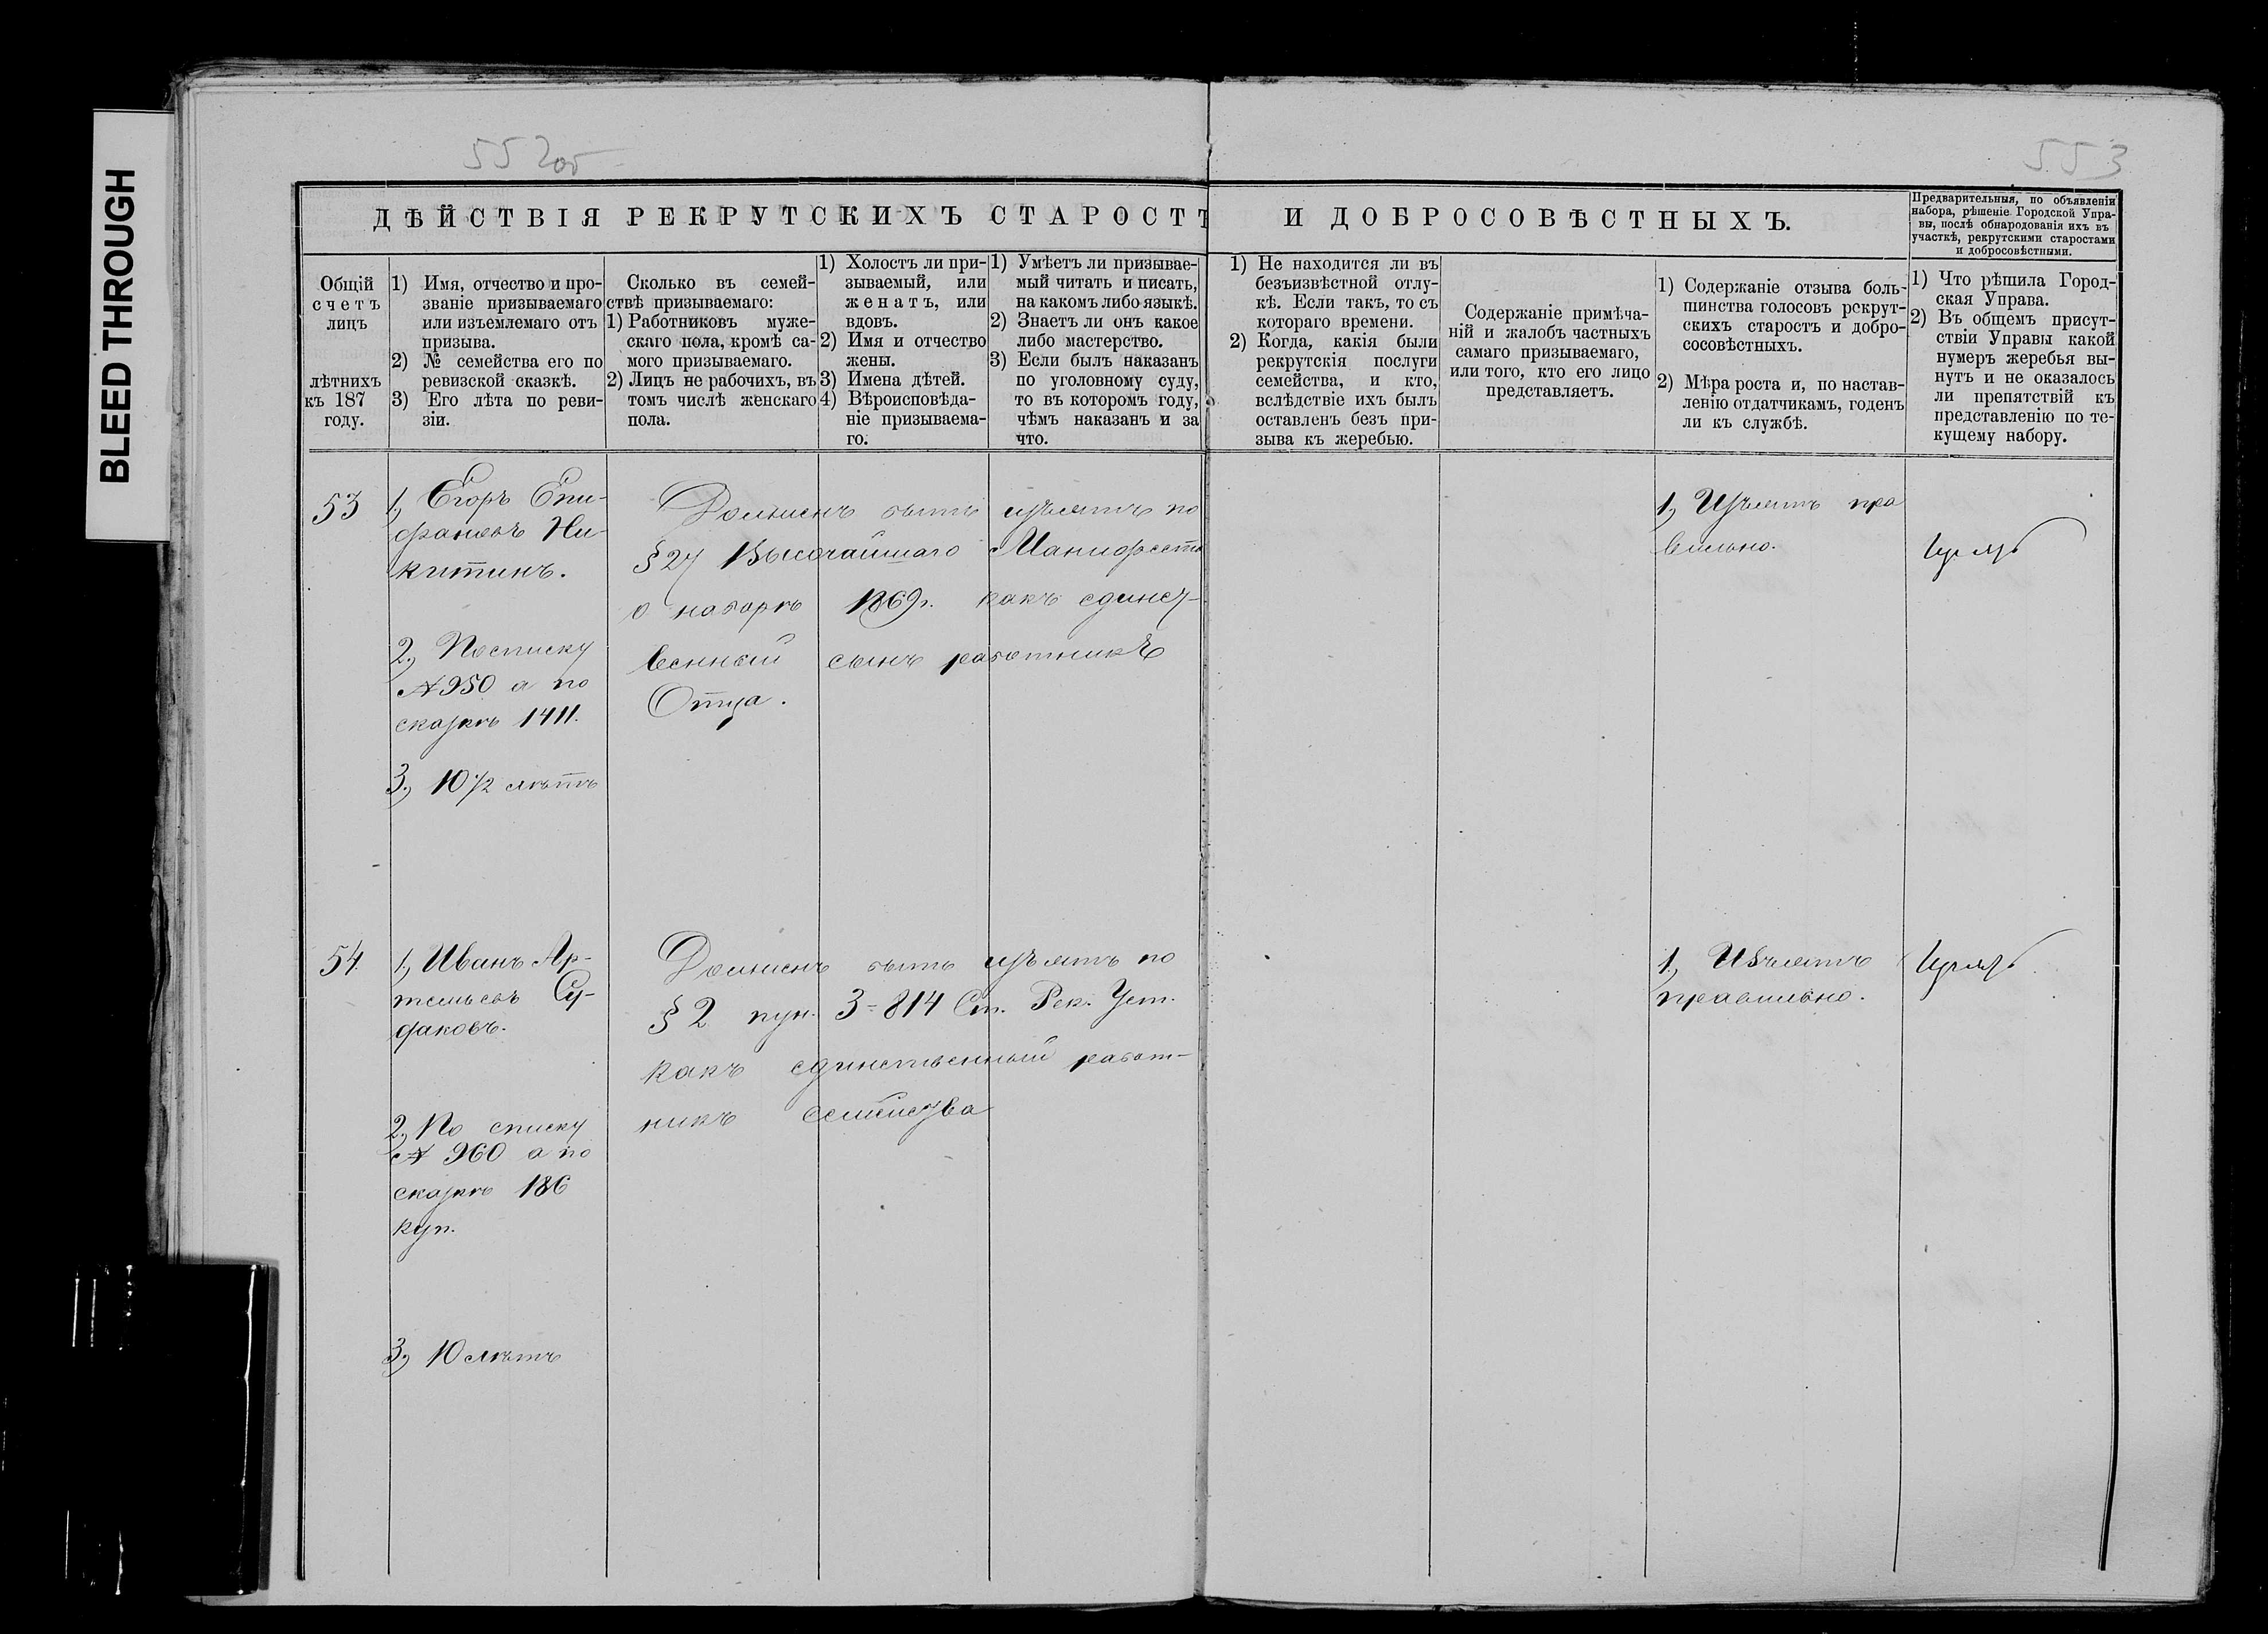 BLEED THROUGH
552об
553
ДѢЙСТВІЯ РЕКРУТСКИХЪ СТАРОСТЪ И ДОБРОСОВѢСТНЫХЪ.
Предварительныя, по объявленіи
набора, рѣшеніе Городской Упра-
вы, послѣ обнародованія ихъ въ
участкѣ, рекрутскими старостами
и добросовѣстными.
Общій
счетъ
лицъ
лѣтнихъ
къ 187
году.
1) Имя, отчество и про-
званіе призываемаго
или изъемлемаго отъ
призыва.
2) № семейства его по
ревизской сказкѣ.
3) Его лѣта по реви-
зіи.
Сколько въ семей-
ствѣ призываемаго:
1) Работниковъ муже-
скаго пола, кромѣ са-
мого призываемаго.
2) Лицъ не рабочихъ, въ
томъ числѣ женскаго
пола.
1) Холостъ ли при-
зываемый, или
женатъ, или
вдовъ.
2) Имя и отчество
жены.
3) Имена дѣтей.
4) Вѣроисповѣда-
ніе призываема-
го.
1) Умѣетъ ли призывае-
мый читать и писать,
на какомъ либо языкѣ.
2) Знаетъ ли онъ какое
либо мастерство.
3) Если былъ наказанъ
по уголовному суду,
то въ которомъ году,
чѣмъ наказанъ и за
что.
1) Не находится ли въ
безъизвѣстной отлу-
кѣ. Если такъ, то съ
котораго времени.
2) Когда, какія были
рекрутскія послуги
семейства, и кто,
вслѣдствіе ихъ былъ
оставленъ безъ при-
зыва къ жеребью.
Содержаніе примѣча-
ній и жалобъ частныхъ
самаго призываемаго,
или того, кто его лицо
представляетъ.
1) Содержаніе отзыва боль-
шинства голосовъ рекрут-
скихъ старостъ и добро-
сосовѣстныхъ.
2) Мѣра роста и, по настав-
ленію отдатчикамъ, годенъ
ли къ службѣ.
1) Что рѣшила Город-
ская Управа.
2) Въ общемъ присут-
ствіи Управы какой
нумеръ жеребья вы-
нутъ и не оказалось
ли препятствій къ
представленію по те-
кущему набору.
53
1, Егоръ Епи-
фановъ Ни-
китинъ.
2, По списку
№ 950 а по
сказкѣ 1411.
3, 10 1/2 лѣтъ
Долженъ быть изъятъ по
§ 27 Высочайшаго Манифеста
о наборѣ 1869г. какъ единст-
венный сынъ работникъ
Отца.
1, Изъятъ пра
вильно.
54.
1, Иванъ Ар-
темьевъ Су-
даковъ.
2, По списку
№ 960 а по
сказкѣ 186
куп.
3, 10 лѣтъ
Долженъ быть изъятъ по
§ 2 пун. 3 = 814 Ст. Рек. Уст.
какъ единственный работ-
никъ семейства
1, Изъятъ
правильно.